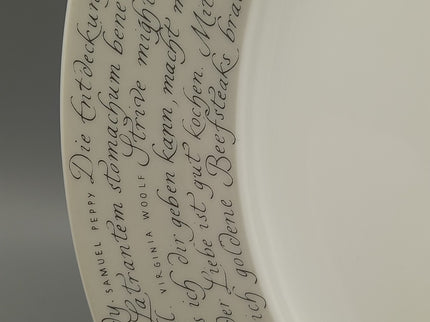 SAMUEL PEPPY Die Entdeckung
latrantem stomachum bene
VIRGINIA WOOLF Strive
ich dir geben kann, macht
Liebe ist gut kochen.
ich goldene Beefsteaks